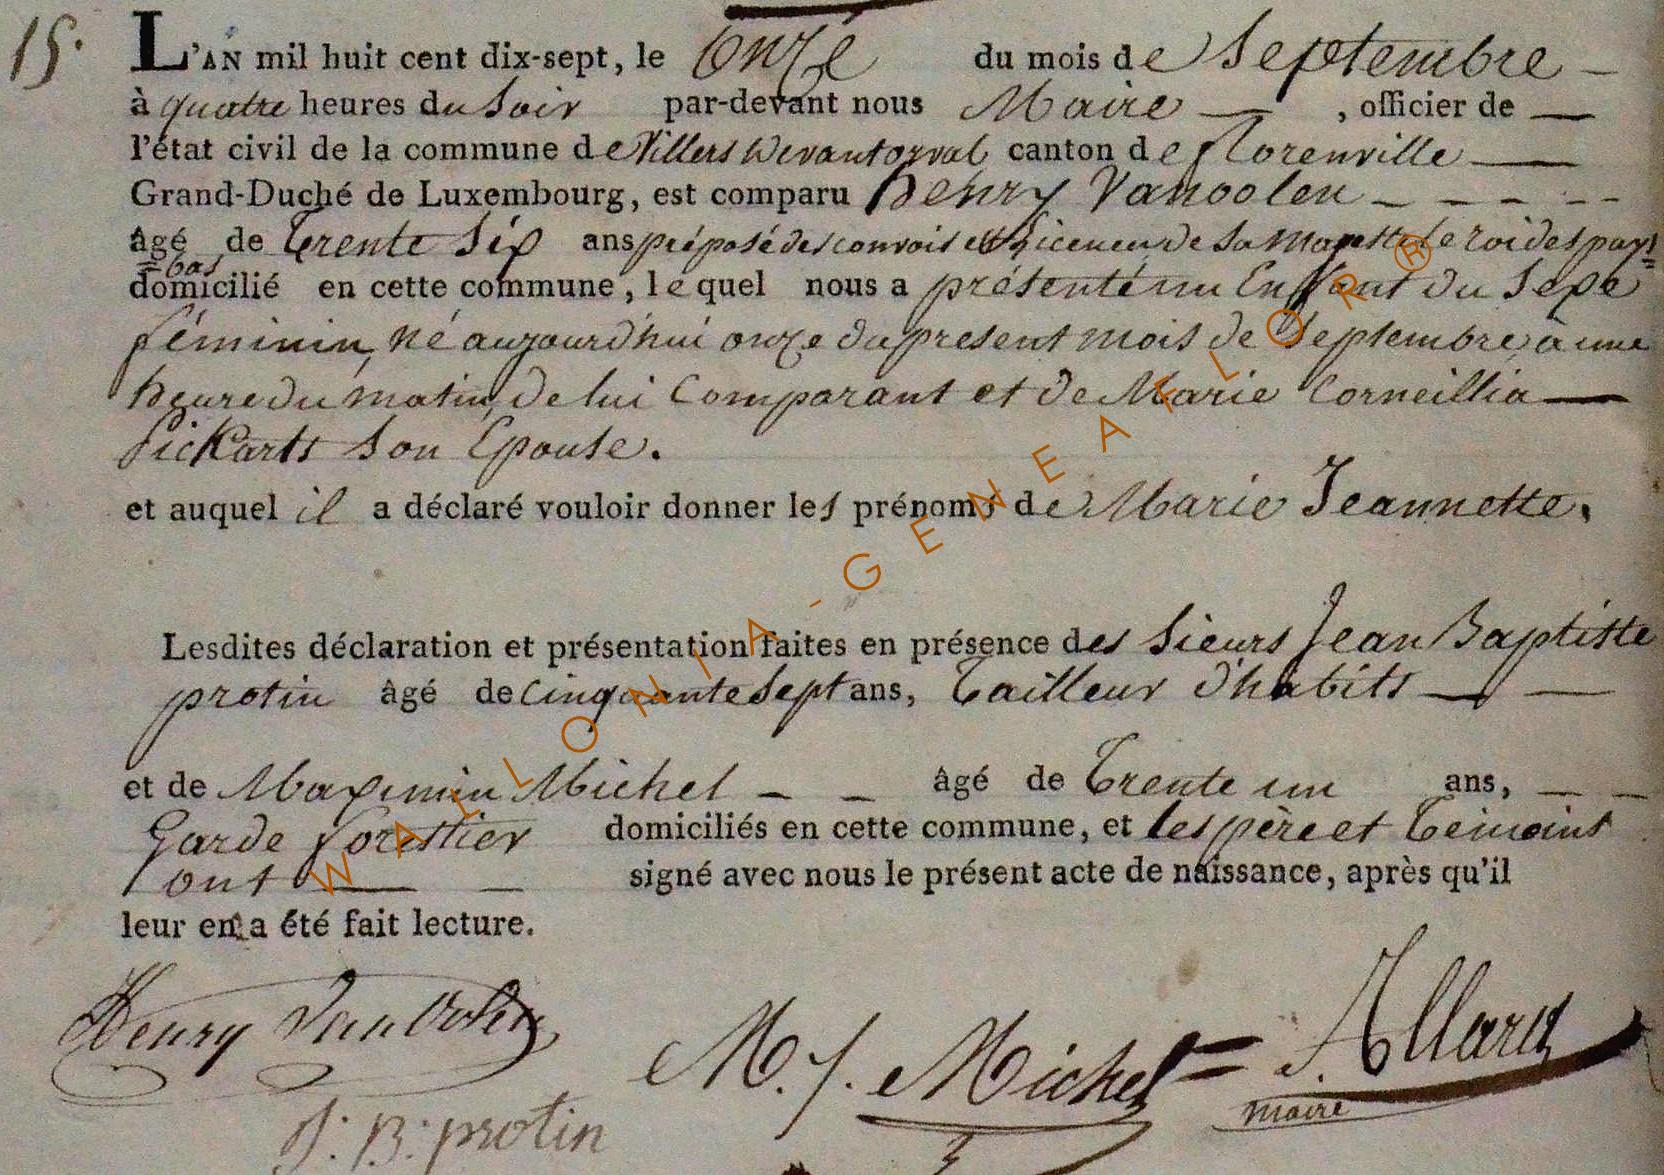 15.
L'AN mil huit cent dix-sept, le Onze du mois de Septembre
à quatre heures du Soir par-devant nous Maire, officier de
l'état civil de la commune de Villers Devant orval canton de florenville
Grand-Duché de Luxembourg, est comparu henry Vanoolen
âgé de Trente Six ans préposé des convois et Licences de Sa Majesté Le roi des pays
=bas
domicilié en cette commune, lequel nous a présenté un Enffant du Sexe
féminin, né aujourd'hui onze du present mois de Septembre à une
heure du matin, de lui Comparant et de Marie Corneillia
Sickarts Son Epouse.
et auquel il a déclaré vouloir donner les prénoms de Marie Jeannette.
Lesdites déclaration et présentation faites en présence des Sieurs Jean Baptiste
protin âgé de Cinquante Sept ans, Tailleur d'habits
et de Maximin Michel âgé de Trente un ans,
Garde forestier domiciliés en cette commune, et les père et Temoins
ont signé avec nous le présent acte de naissance, après qu'il
leur en a été fait lecture.
Henry Van Oolen
M. J. Michel
J. Allard
maire
J: B: protin
WALLONIA-GENEAFLOR®